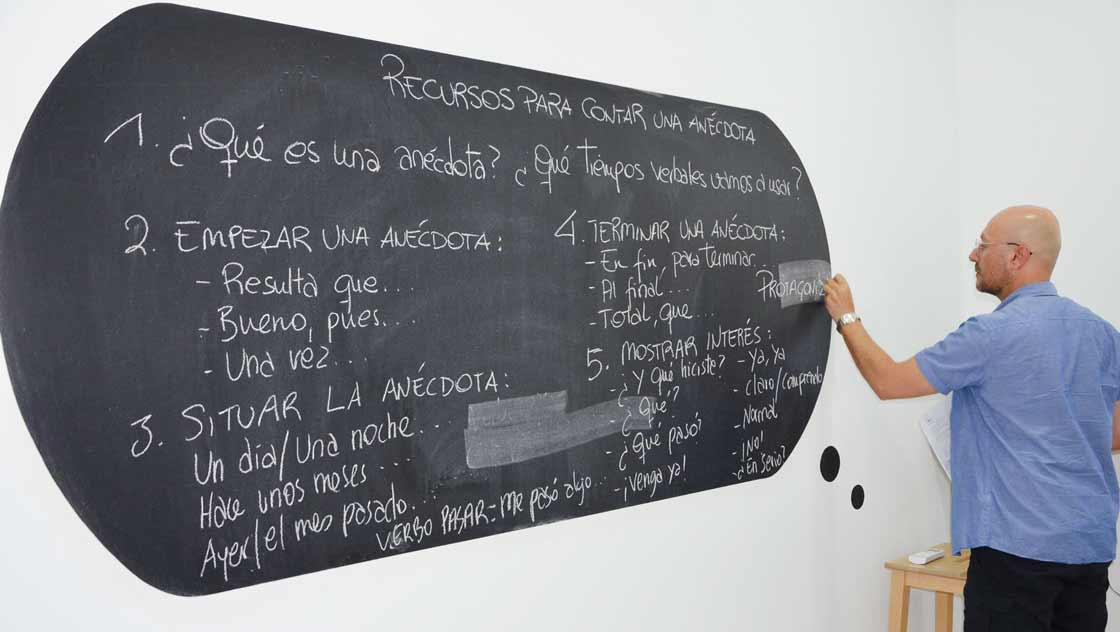 RECURSOS PARA CONTAR UNA ANÉCDOTA
1. ¿Qué es una anécdota? ¿Qué tiempos verbales vamos a usar?
2. EMPEZAR UNA ANÉCDOTA:
- Resulta que...
- Bueno, pues...
- Una vez...
3. SITUAR LA ANÉCDOTA:
Un día/Una noche...
Hace unos meses ....
Ayer/el mes pasado...
VERBO PASAR - Me pasó algo...
4. TERMINAR UNA ANÉCDOTA:
- En fin, para terminar...
- Al final...
- Total, que...
PROTAGONIZ
5. MOSTRAR INTERÉS:
- ¿Y qué hiciste?
- ¿Qué?
- ¿Qué pasó?
- ¡Venga ya!
- Ya, ya
- claro/comprendo
- Normal
- ¡No!
- ¿En serio?